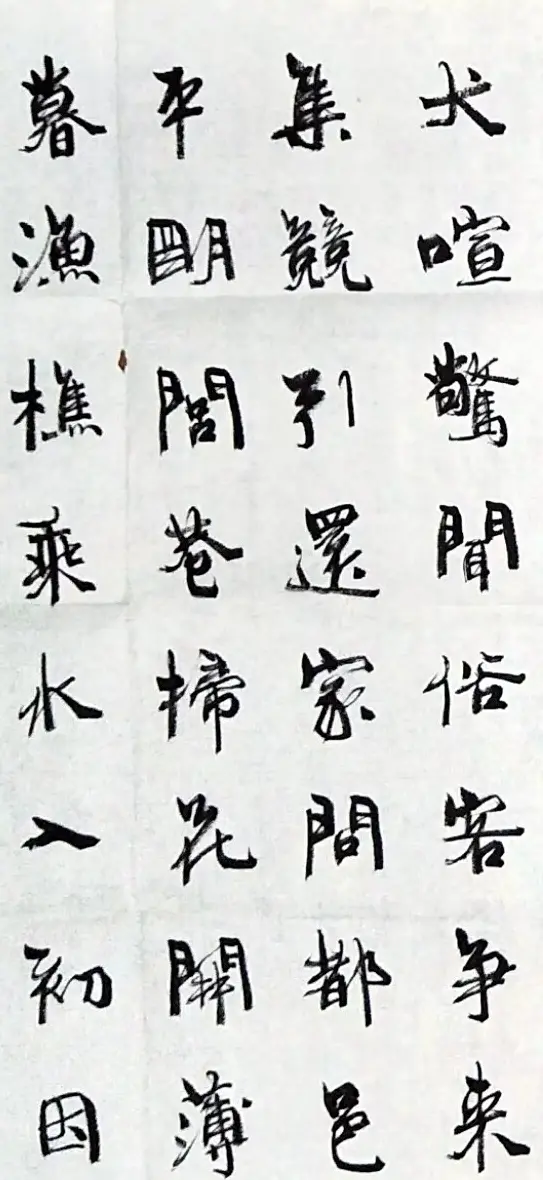 犬喧驚聞俗客争来
集競引還家問都邑
平明閭巷掃花開薄
暮漁樵乘水入初因